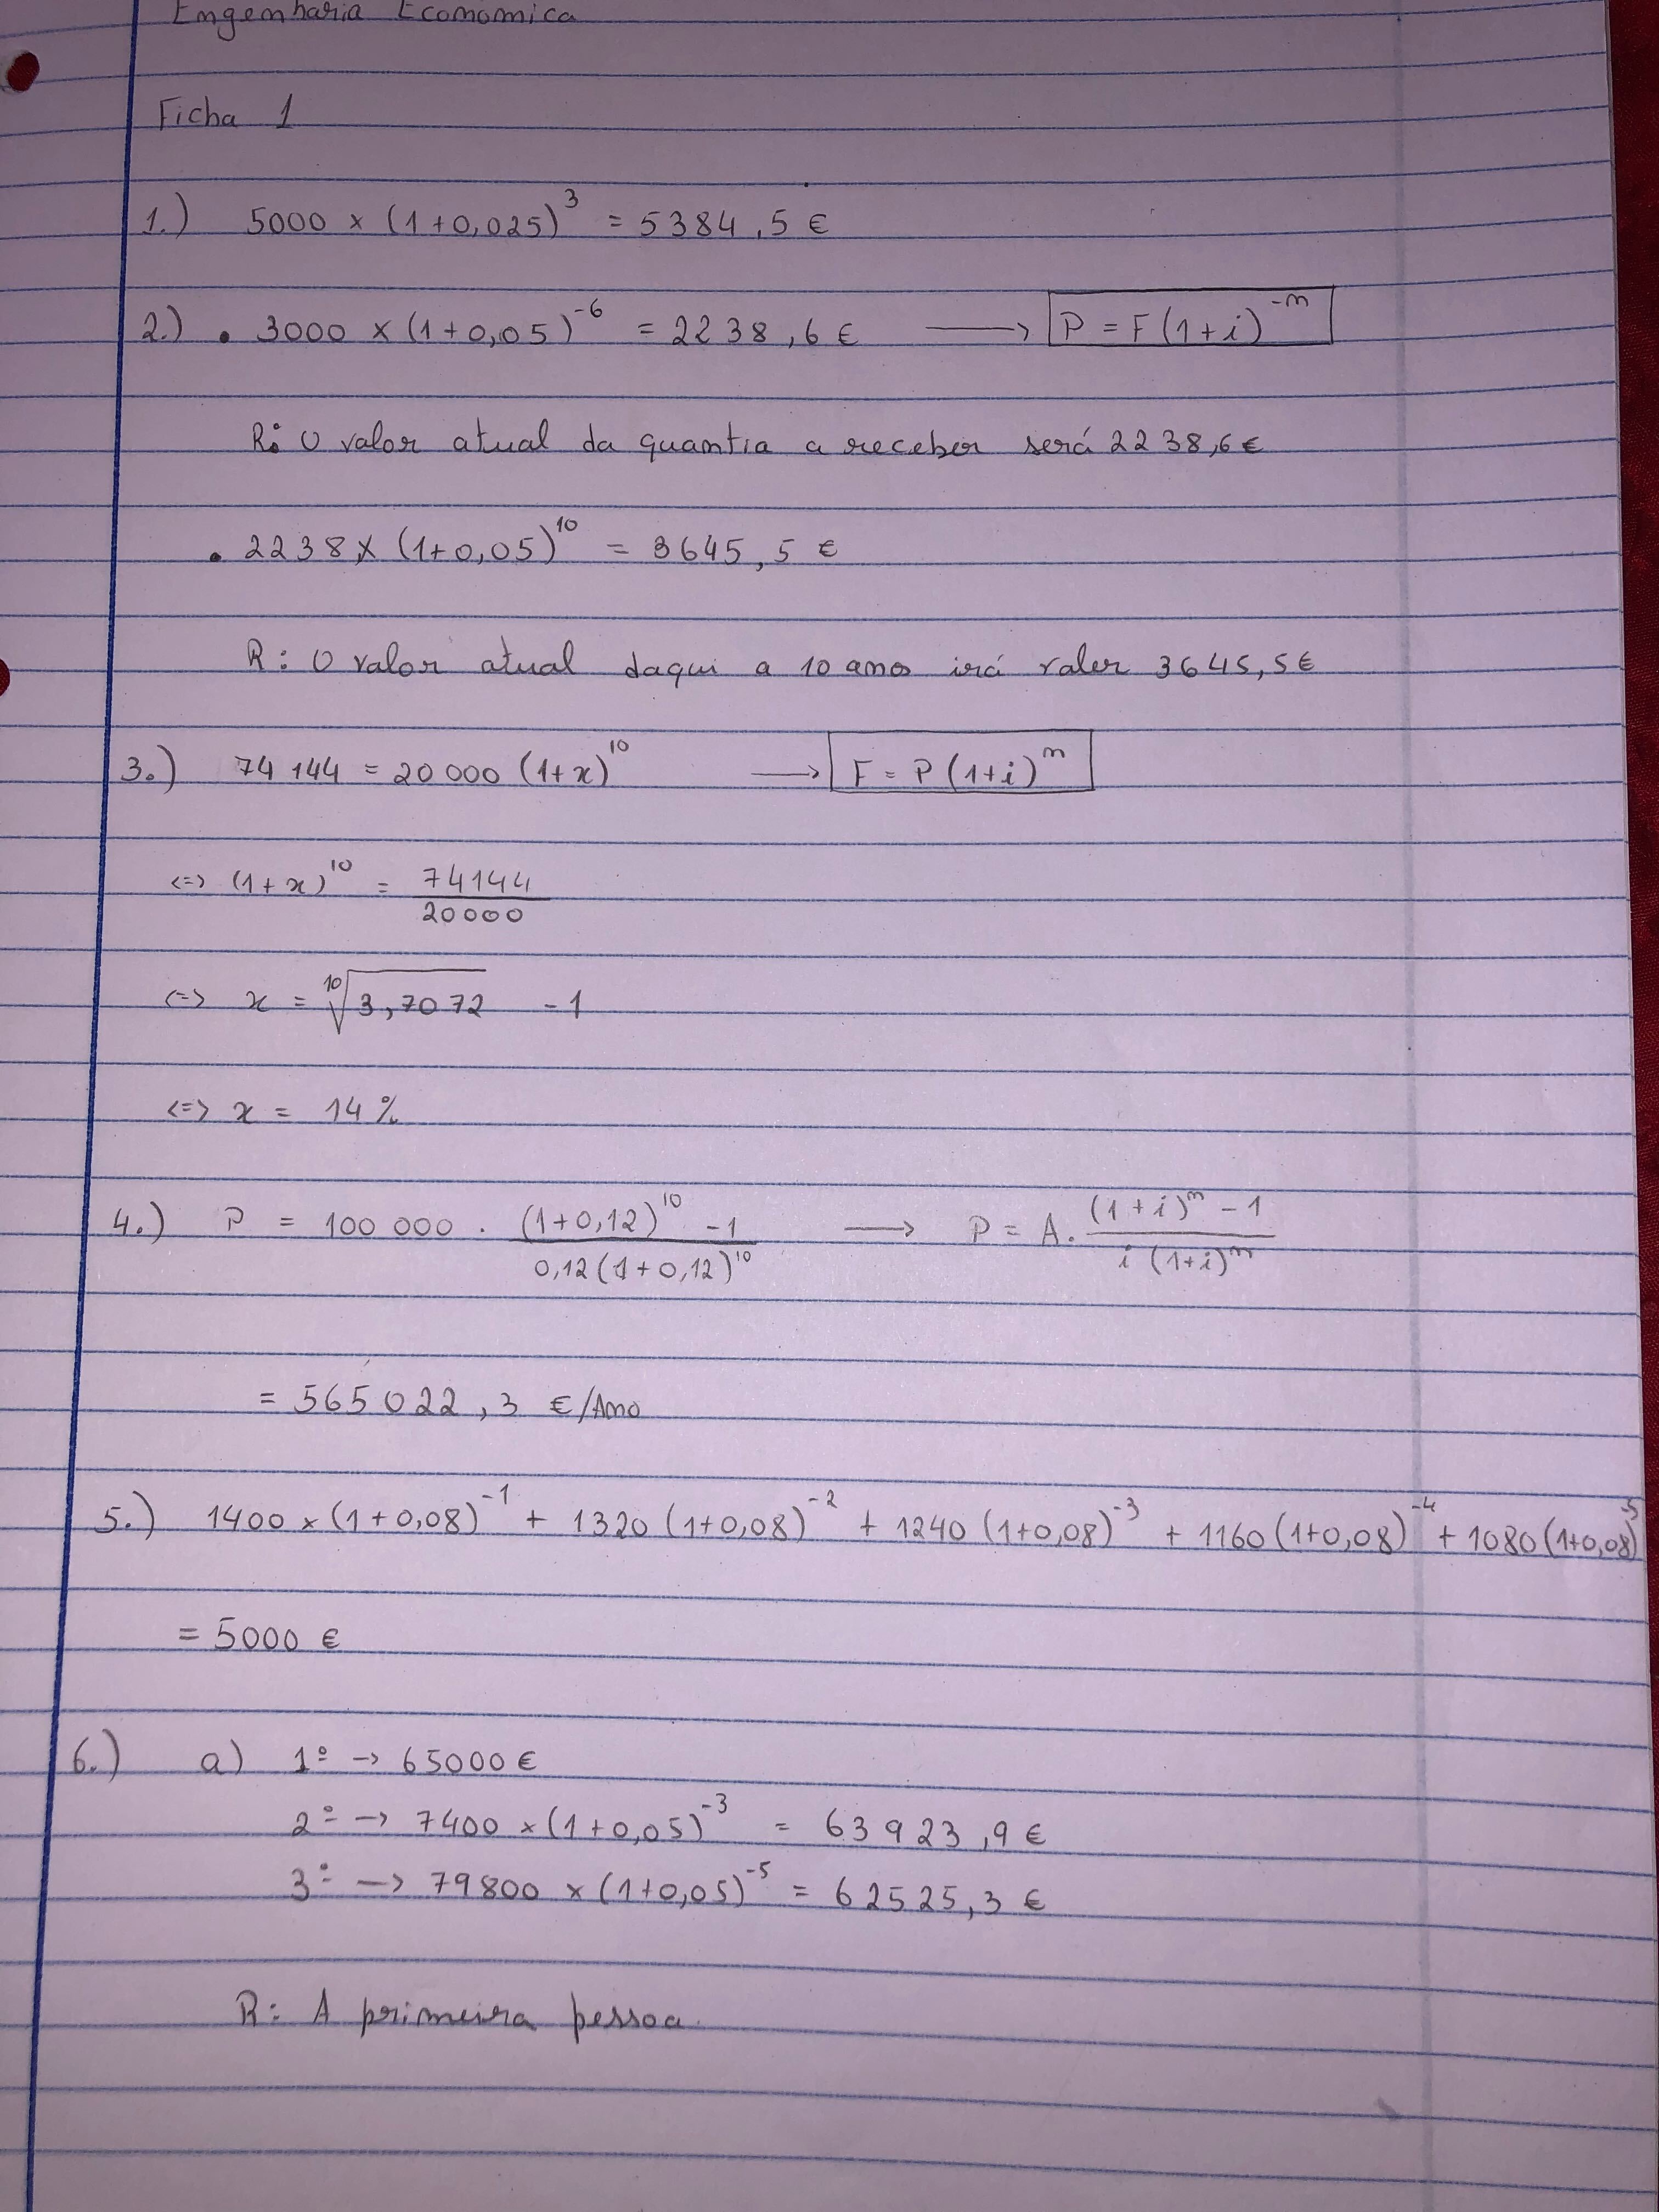 Engenharia Economica
Ficha 1
1.) 5000 × (1+0,025)^3 = 5384,5 €
2.) • 3000 × (1+0,05)^-6 = 2238,6 € → P = F(1+i)^-n
R: O valor atual da quantia a receber será 2238,6 €
• 2238 × (1+0,05)^10 = 3645,5 €
R: O valor atual daqui a 10 anos irá valer 3645,5 €
3.) 74 144 = 20 000 (1+x)^10 → F = P(1+i)^n
<=> (1+x)^10 = 74144/20000
<=> x = ¹⁰√3,7072 - 1
<=> x = 14%
4.) P = 100 000 . ((1+0,12)^10 - 1)/(0,12(1+0,12)^10) → P = A. ((1+i)^n - 1)/(i(1+i)^n)
= 565 022,3 €/Ano
5.) 1400 × (1+0,08)^-1 + 1320 (1+0,08)^-2 + 1240 (1+0,08)^-3 + 1160 (1+0,08)^-4 + 1080 (1+0,08)^-5
= 5000 €
6.) a) 1º → 65000 €
2º → 7400 × (1+0,05)^-3 = 63 923,9 €
3º → 79800 × (1+0,05)^-5 = 62525,3 €
R: A primeira pessoa.